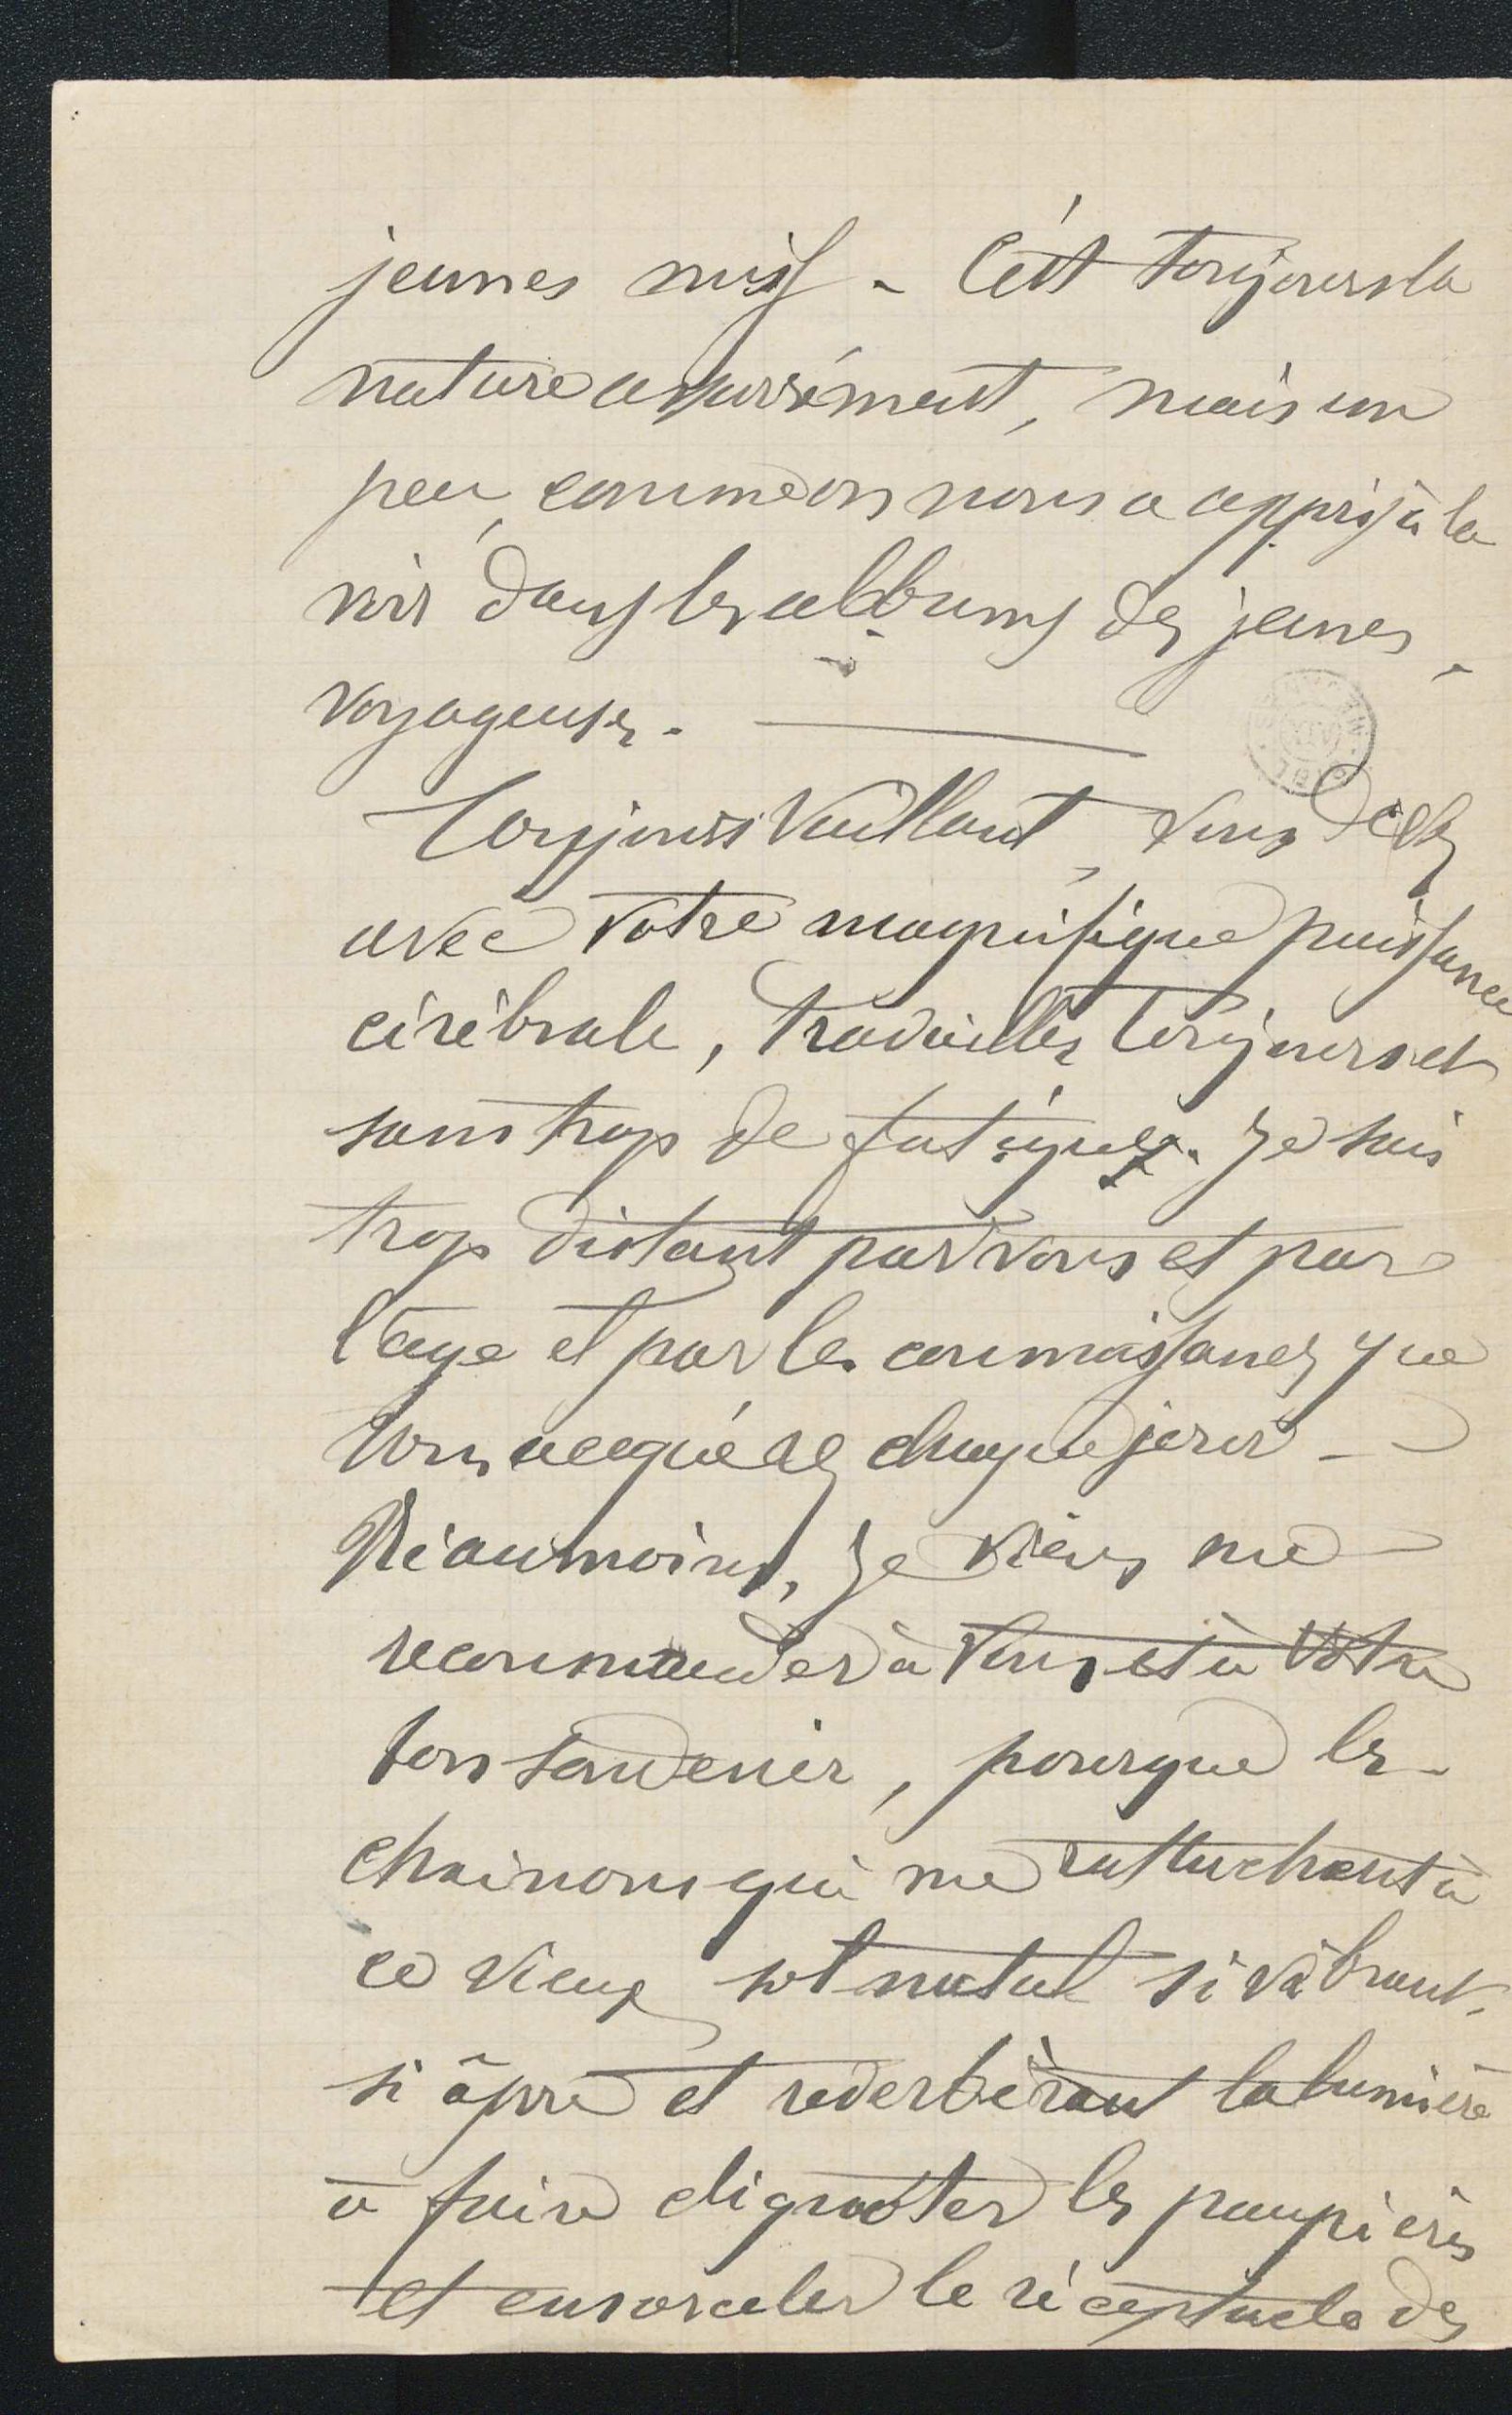 jeunes miss - C'est toujours la
nature assurément, mais un
peu, comme on nous a appris à la
voir dans les albums des jeunes
voyageuses. —
Toujours vaillant, vous devez
avec votre magnifique puissance
cérébrale, travailler toujours et
sans trop de fatigues. Je suis
trop distant par vous et par
l'âge et par les connaissances que
vous acquérez chaque jour -
Néanmoins, je viens me
recommander à vous et à votre
bon souvenir, pour que les
chainons qui me rattachent à
ce vieux sol natal si vibrant,
si âpre et réverbérant la lumière
à faire clignoter les paupières
et ensorceler le réceptacle des